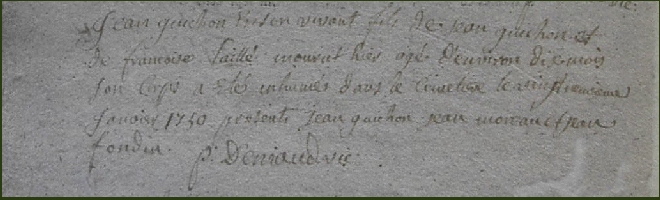 Jean guichon en son vivant fils de jean guichon et
de francoise taillé mourut hier agé d'environ dix mois
son corps a été inhumés dans le cimetiere le vingtieuseme
Janvier 1750 presents jean guichon jean moreau et jean
fondin. p. Deniaud vic